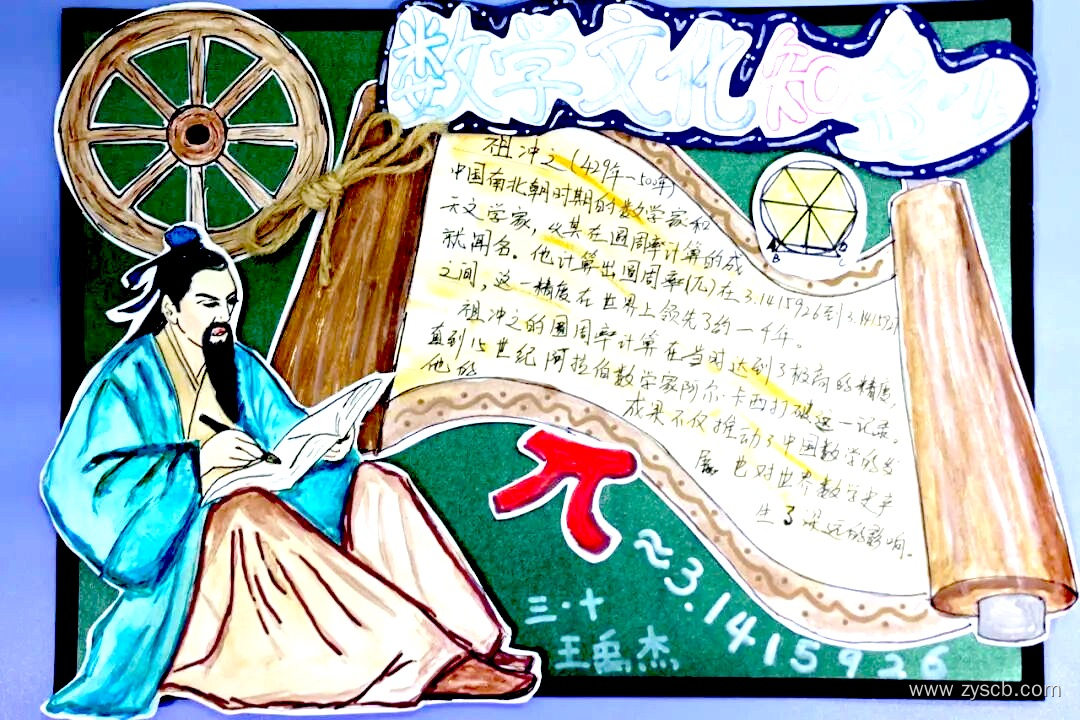 数学文化知
祖冲之（429年—500年）
中国南北朝时期的数学家和
天文学家，以其在圆周率计算的成
就闻名。他计算出圆周率(π)在3.1415926到3.1415927
之间，这一精度在世界上领先了约一千年。
祖冲之的圆周率计算在当时达到了极高的精度，
直到15世纪阿拉伯数学家阿尔·卡西打破这一记录。
他的
成果不仅推动了中国数学的发
展 也对世界数学史产
生了深远的影响。
A
B
C
D
π
≈3.1415926
三·十
王禹杰
www.zyscb.com